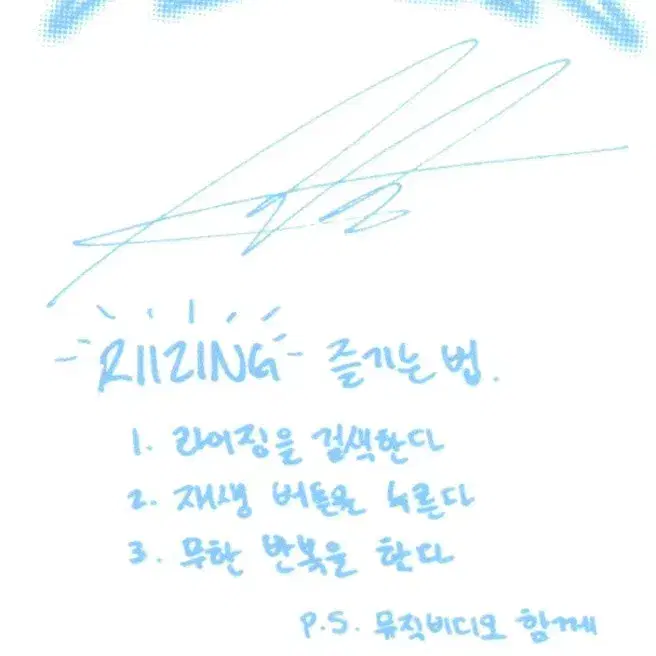 RIIZING 즐기는 법.
1. 라이징을 검색한다
2. 재생 버튼을 누른다
3. 무한 반복을 한다
P.S. 뮤직비디오 함께